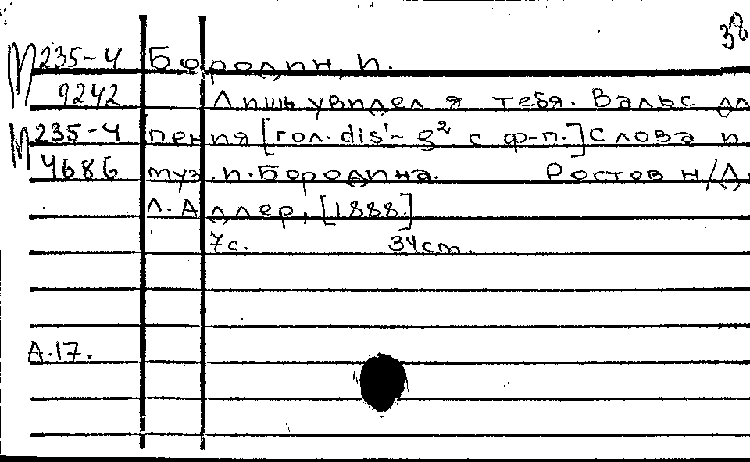 38
М 235-4 Бородин, П.
9242 Лишь увидел я тебя. Вальс дл
М 235-4 пения [гол. dis¹~g² с ф-п.] Слова и
4686 муз. П. Бородина. Ростов н/Д,
Л. Адлер, [1888]
7с. 34cm.
А.17.